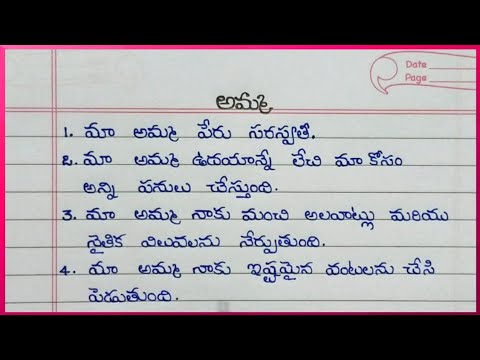 Date
Page
అమ్మ
1. మా అమ్మ పేరు సరస్వతి.
2. మా అమ్మ ఉదయాన్నే లేచి మా కోసం
అన్ని పనులు చేస్తుంది.
3. మా అమ్మ నాకు మంచి అలవాట్లు మరియు
నైతిక విలువలను నేర్పుతుంది.
4. మా అమ్మ నాకు ఇష్టమైన వంటలను చేసి
పెడుతుంది.